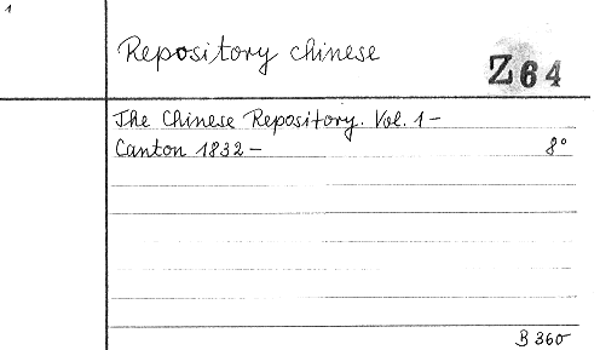 1
Repository chinese
Z64
The Chinese Repository. Vol. 1-
Canton 1832- 8°
B 360